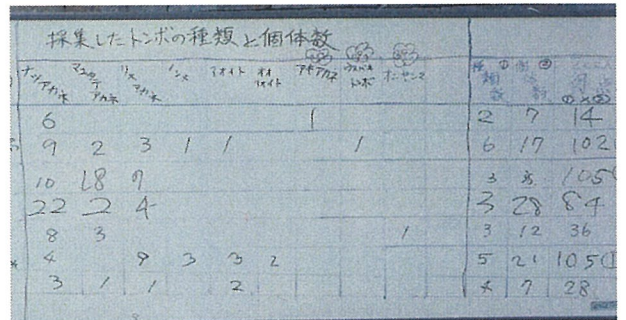 採集したトンボの種類と個体数
ナツアカネ マユタテアカネ リスアカネ ノシメ アオイト オオアオイト アキアカネ ウスバキトンボ オニヤンマ 種類数① 個体数② ①×②
6 1 2 7 14
9 2 3 1 1 1 6 17 102
10 18 7 3 35 105
22 2 4 3 28 84
8 3 1 3 12 36
4 9 3 3 2 5 21 105
3 1 1 2 4 7 28